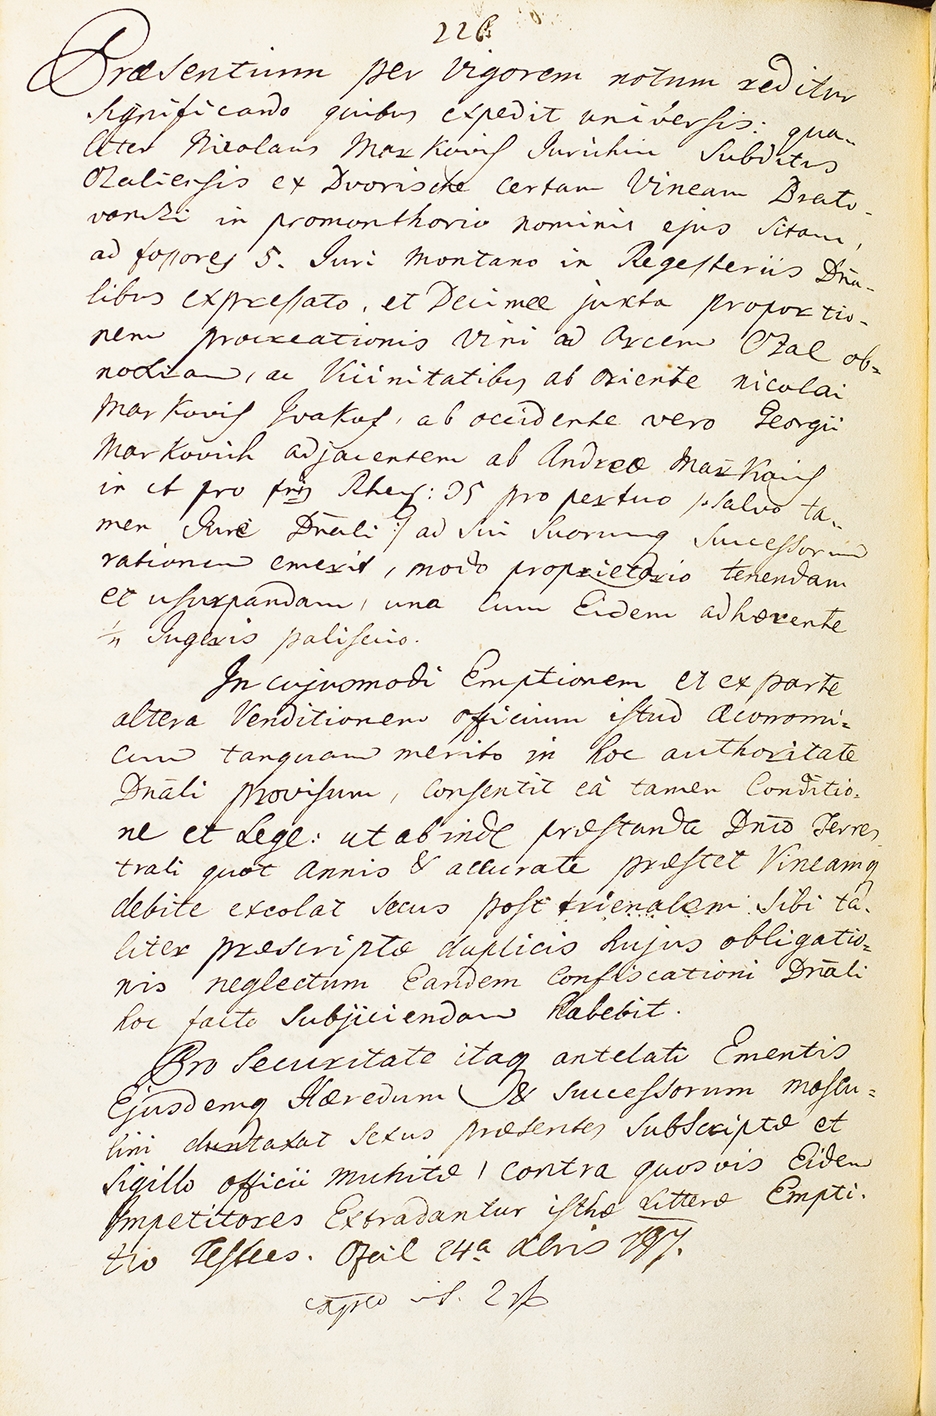 226
Præsentium per Vigorem notum redditur
significando quibus expedit universis: qua-
liter Nicolaus Markovich Jurichin Subditus
Ozaliensis ex Dvorische certam Vineam Brato-
vanzi in promonthorio nominis ejus sitam,
ad fossores 5. Juri montano in Regesteriis Dña-
libus expressato, et Decimæ juxta proportio-
nem procreationis Vini ad Arcem Ozal ob-
noxiam, ac Vicinitatibus ab oriente nicolai
Markovich Ivakaf, ab occidente vero Georgii
Markovich adjacentem ab Andreæ Markovich
in et pro Rhen: 35 pro pertuo /:salvo ta-
men Jure Dñali:/ ad Sui Suorumq Successorum
rationem emerit, modo proprietario tenendam
et usurpandam, una cum Eidem adhærente
Jugeris paliscio.
In cujusmodi Emptionem et ex parte
altera Venditionem officium istud œconomi-
cum tanquam merito in hoc authoritate
Dñali provisum, consentit eà tamen Conditio-
ne et Lege: ut abinde præstanda Dnio Terres-
trali quot Annis & accurate præstet Vineamq
debite excolat secus post trienalem sibi ta-
liter præscriptæ duplicis hujus obligatio-
nis neglectum Eandem Confiscationi Dñali
hoc facto Subjiciendam habebit.
Pro Securitate itaq antelati Ementis
Ejusdemq Hæredum & Successorum mascu-
lini duntaxat sexus præsentes subscriptæ et
Sigillo officii munitæ, contra quosvis Eidem
Impetitores Extradantur isthæ Litteræ Empti-
tio Testes. Ozail 24a Xbris 797.